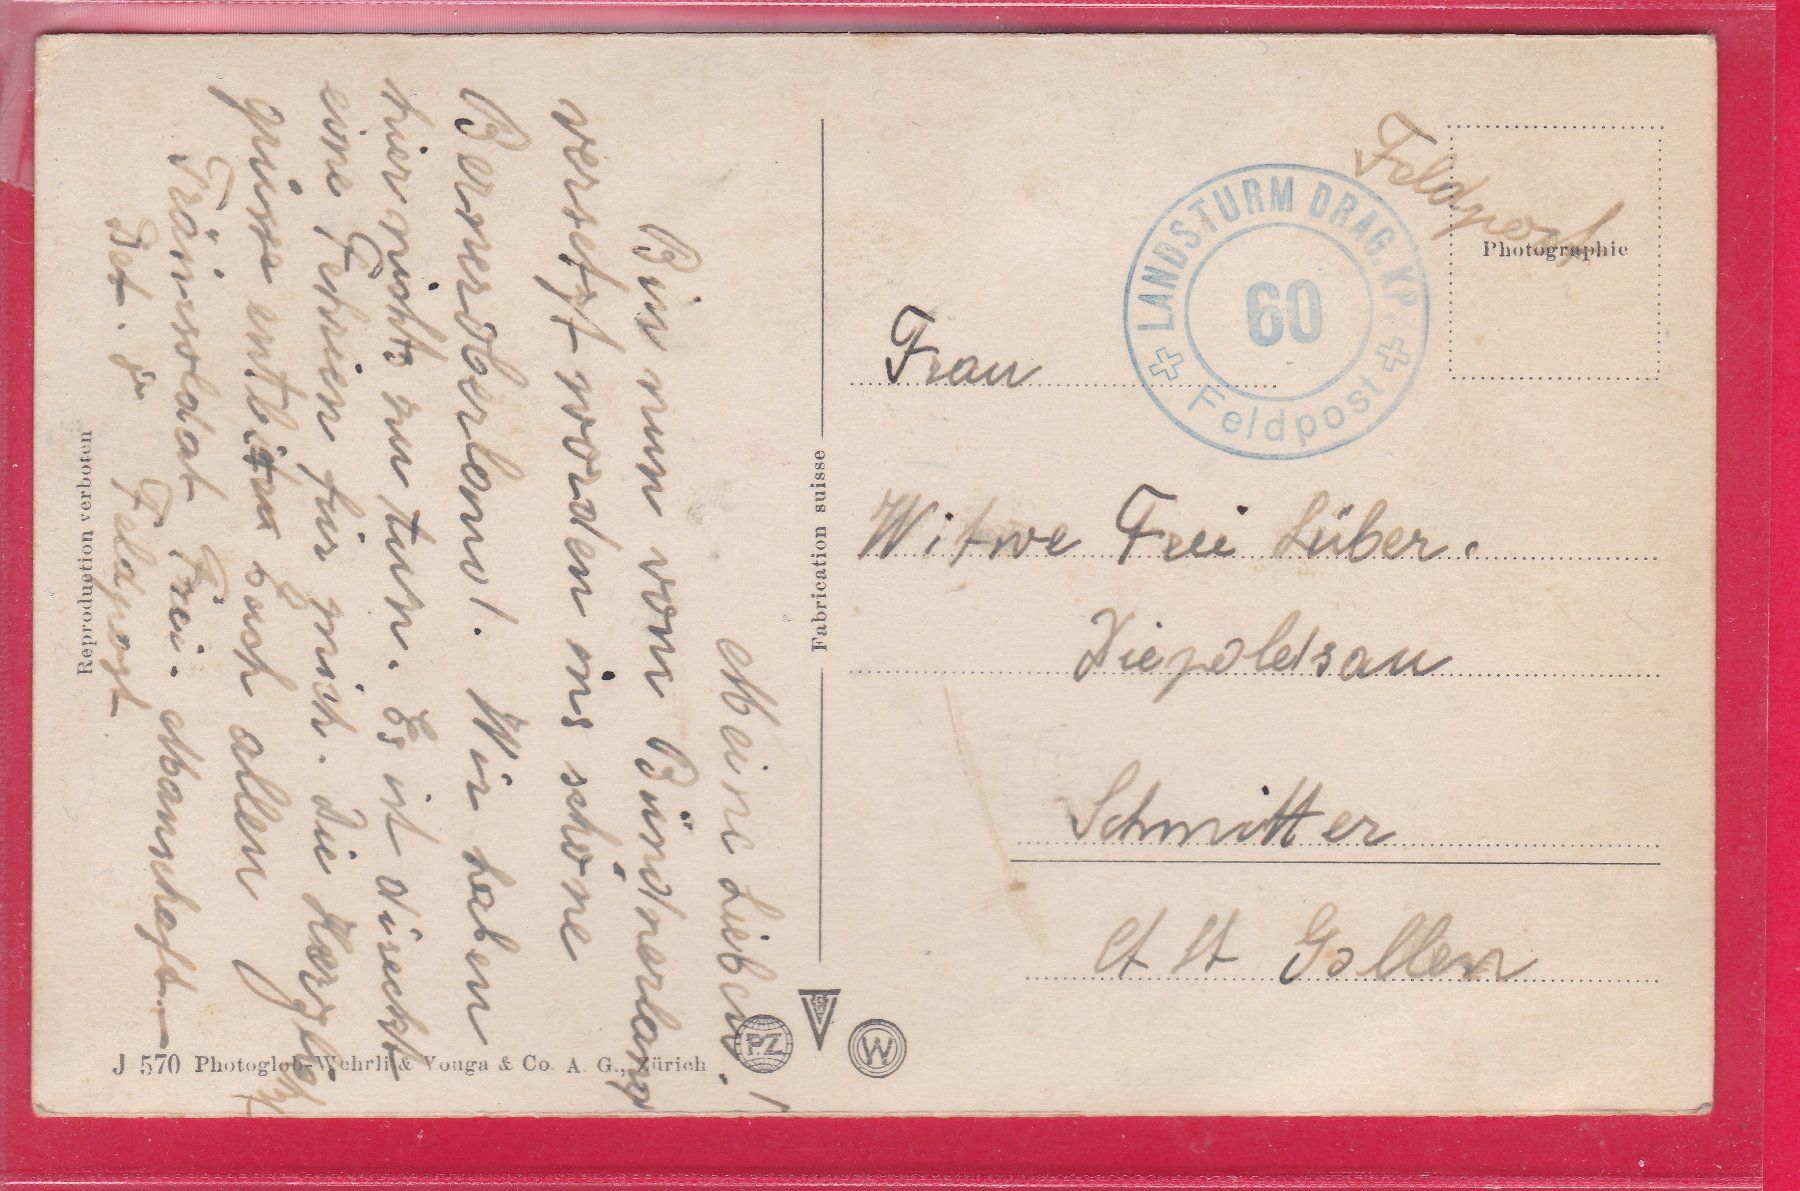 Meine Lieben!
Bin nun vom Bündnerland
versetzt worden ins schöne
Berneroberland. Wir haben
hier nichts zu tun. Es ist direckt
eine Ferien für mich. Die
grüsse entbitten Euch allen
Träinsoldat Frei. Mannschaft.
Det. Feldpost
Reproduction verboten
Fabrication suisse
J 570 Photoglob-Wehrli & Vouga & Co. A. G., Zürich
PZ
W
Feldpost
Photographie
LANDSTURM DRAG. KP.
60
Feldpost
Frau
Witwe Frei Lüber.
Diepoldsau
Schmitter
Ct St Gallen